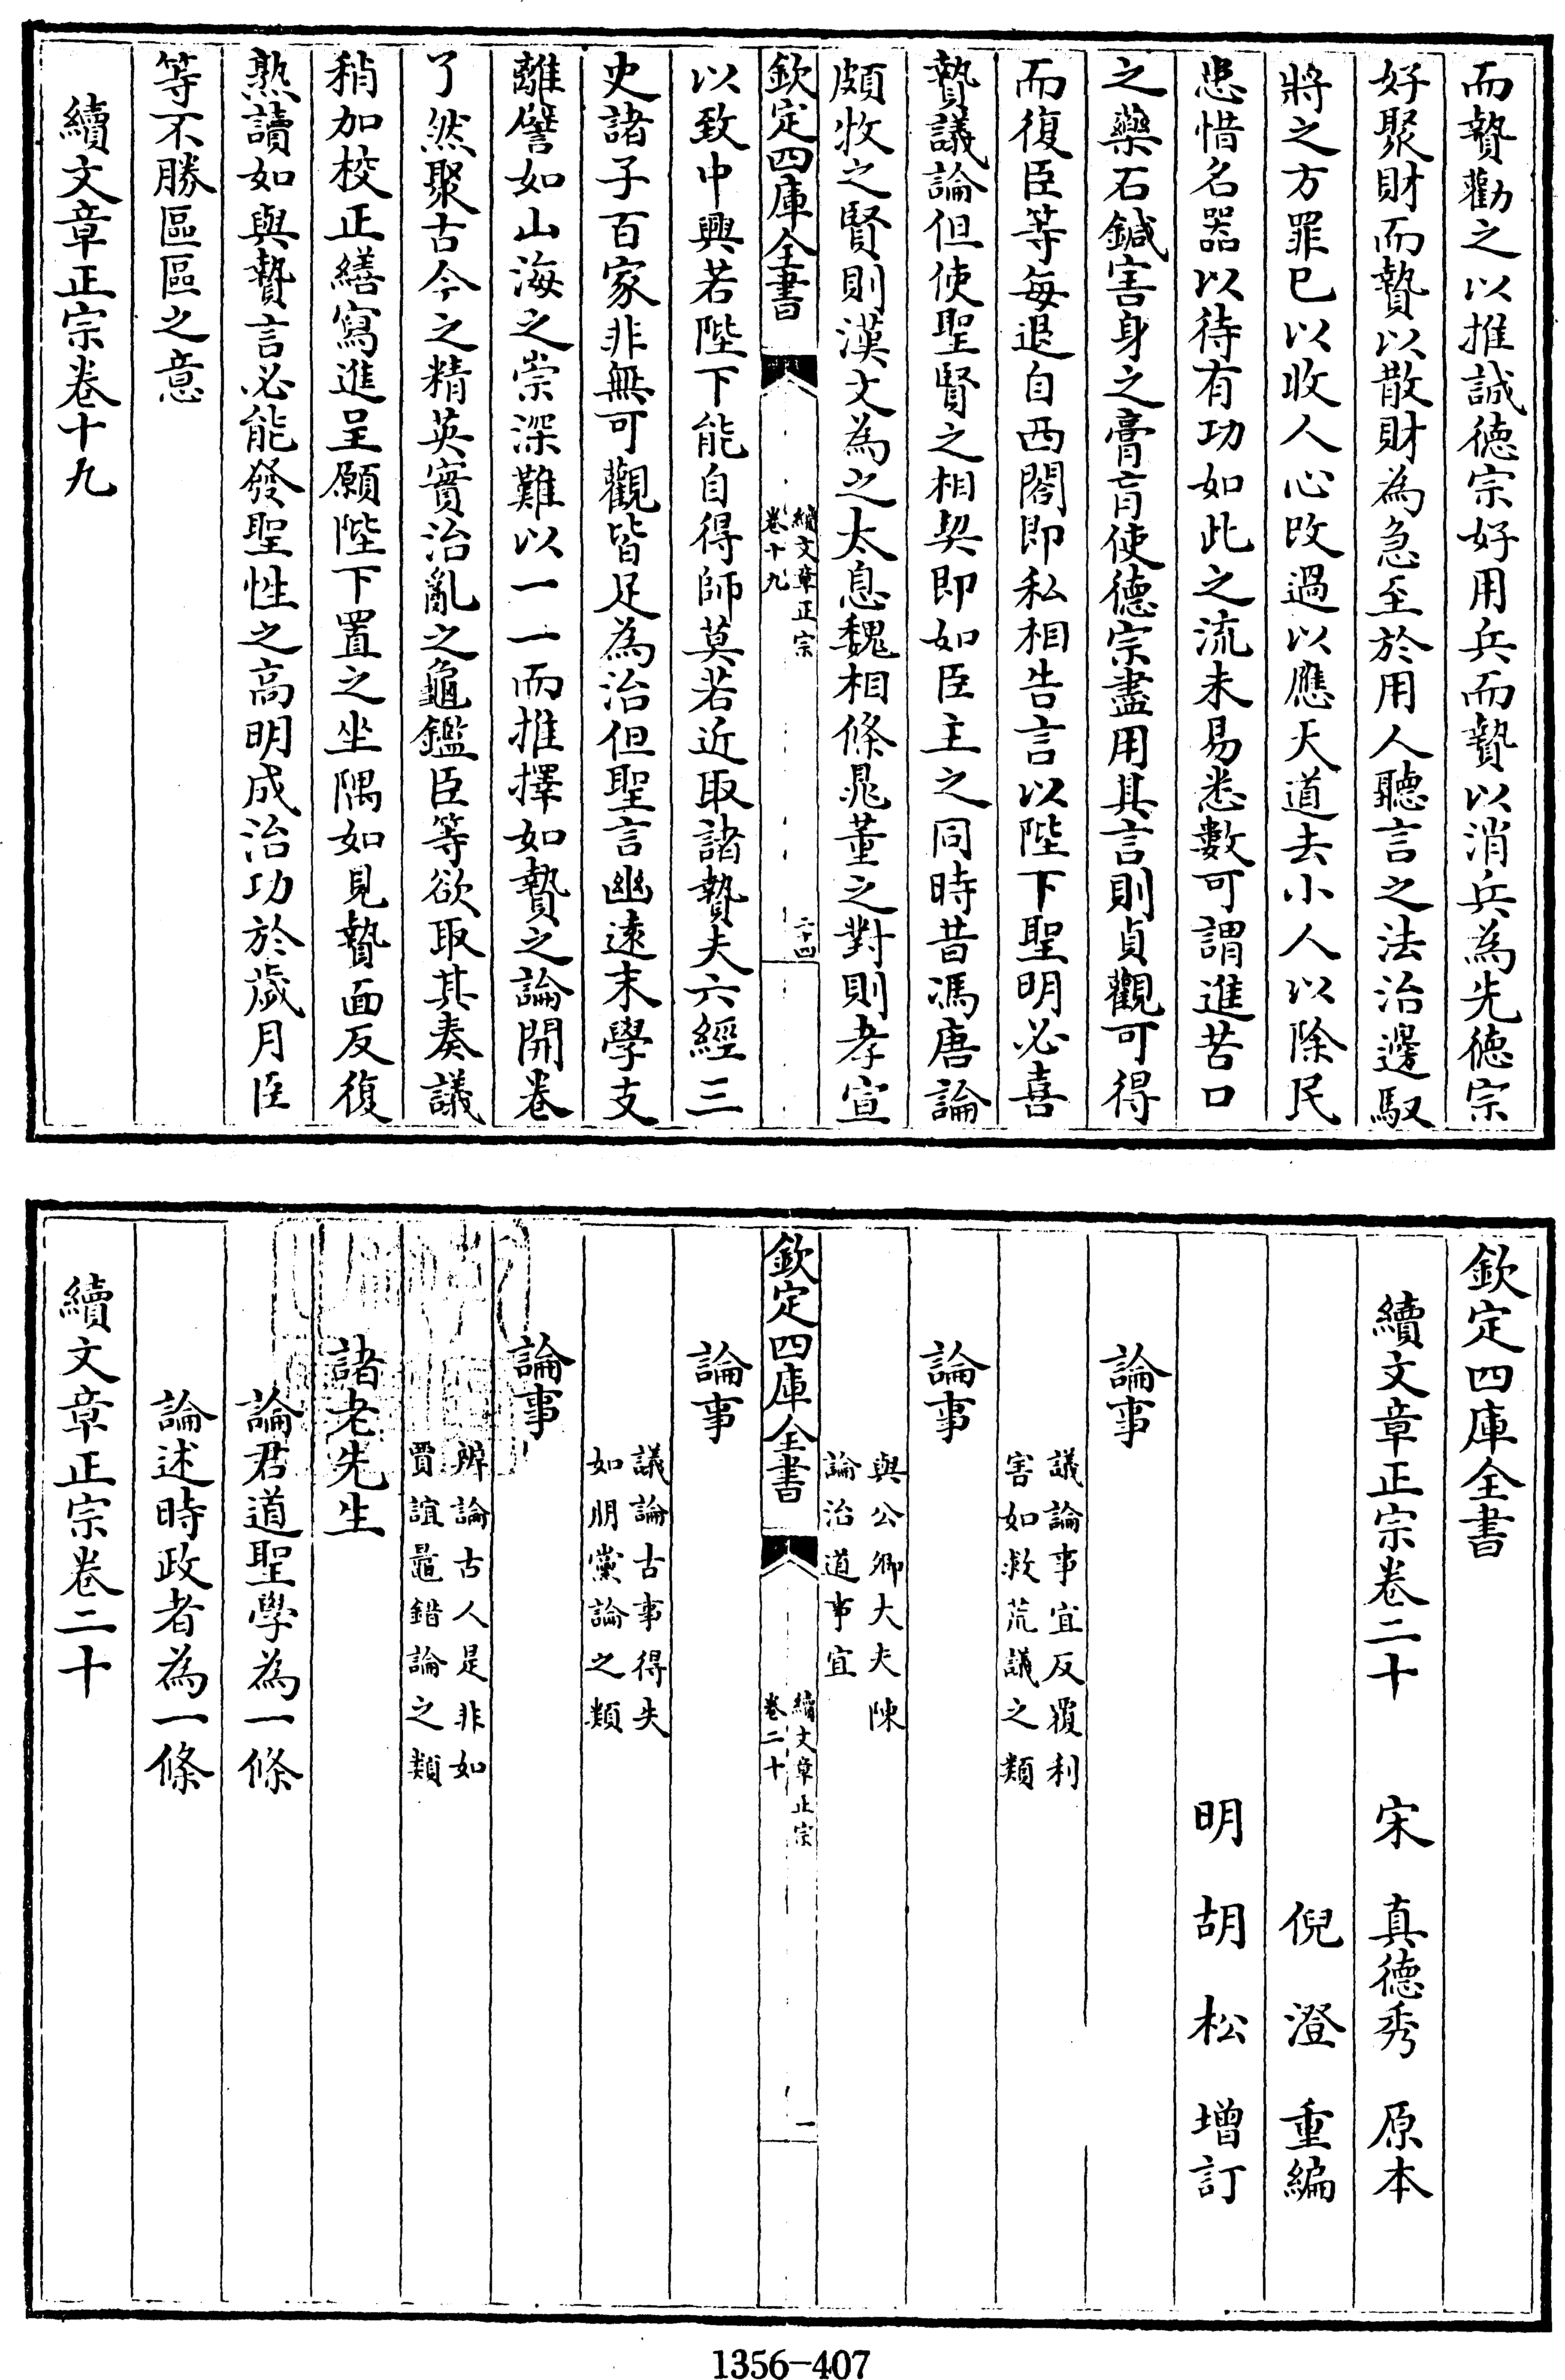 而贄勸之以推誠徳宗好用兵而贄以消兵為先徳宗
好聚財而贄以散財為急至於用人聽言之法治邊馭
將之方罪已以收人心改過以應天道去小人以除民
患惜名器以待有功如此之流未易悉數可謂進苦口
之藥石鍼害身之膏肓使徳宗盡用其言則貞觀可得
而復臣等每退自西閣即私相告言以陛下聖明必喜
贄議論但使聖賢之相契即如臣主之同時昔馮唐論
頗牧之賢則漢文為之太息魏相條晁董之對則孝宣
欽定四庫全書
續文章正宗
卷十九
二十四
以致中興若陛下能自得師莫若近取諸贄夫六經三
史諸子百家非無可觀皆足為治但聖言幽遠末學支
離譬如山海之崇深難以一一而推擇如贄之論開卷
了然聚古今之精英實治亂之龜鑑臣等欲取其奏議
稍加校正繕寫進呈願陛下置之坐隅如見贄面反復
熟讀如與贄言必能發聖性之高明成治功於歲月臣
等不勝區區之意
續文章正宗卷十九
欽定四庫全書
續文章正宗卷二十 宋 真德秀 原本
倪 澄 重編
明 胡 松 增訂
論事
議論事宜反覆利
害如救荒議之類
論事
與公卿大夫陳
論治道事宜
欽定四庫全書
續文章正宗
卷二十
一
論事
議論古事得失
如朋黨論之類
論事
辨論古人是非如
賈誼鼂錯論之類
諸老先生
論君道聖學為一條
論述時政者為一條
續文章正宗卷二十
1356-407